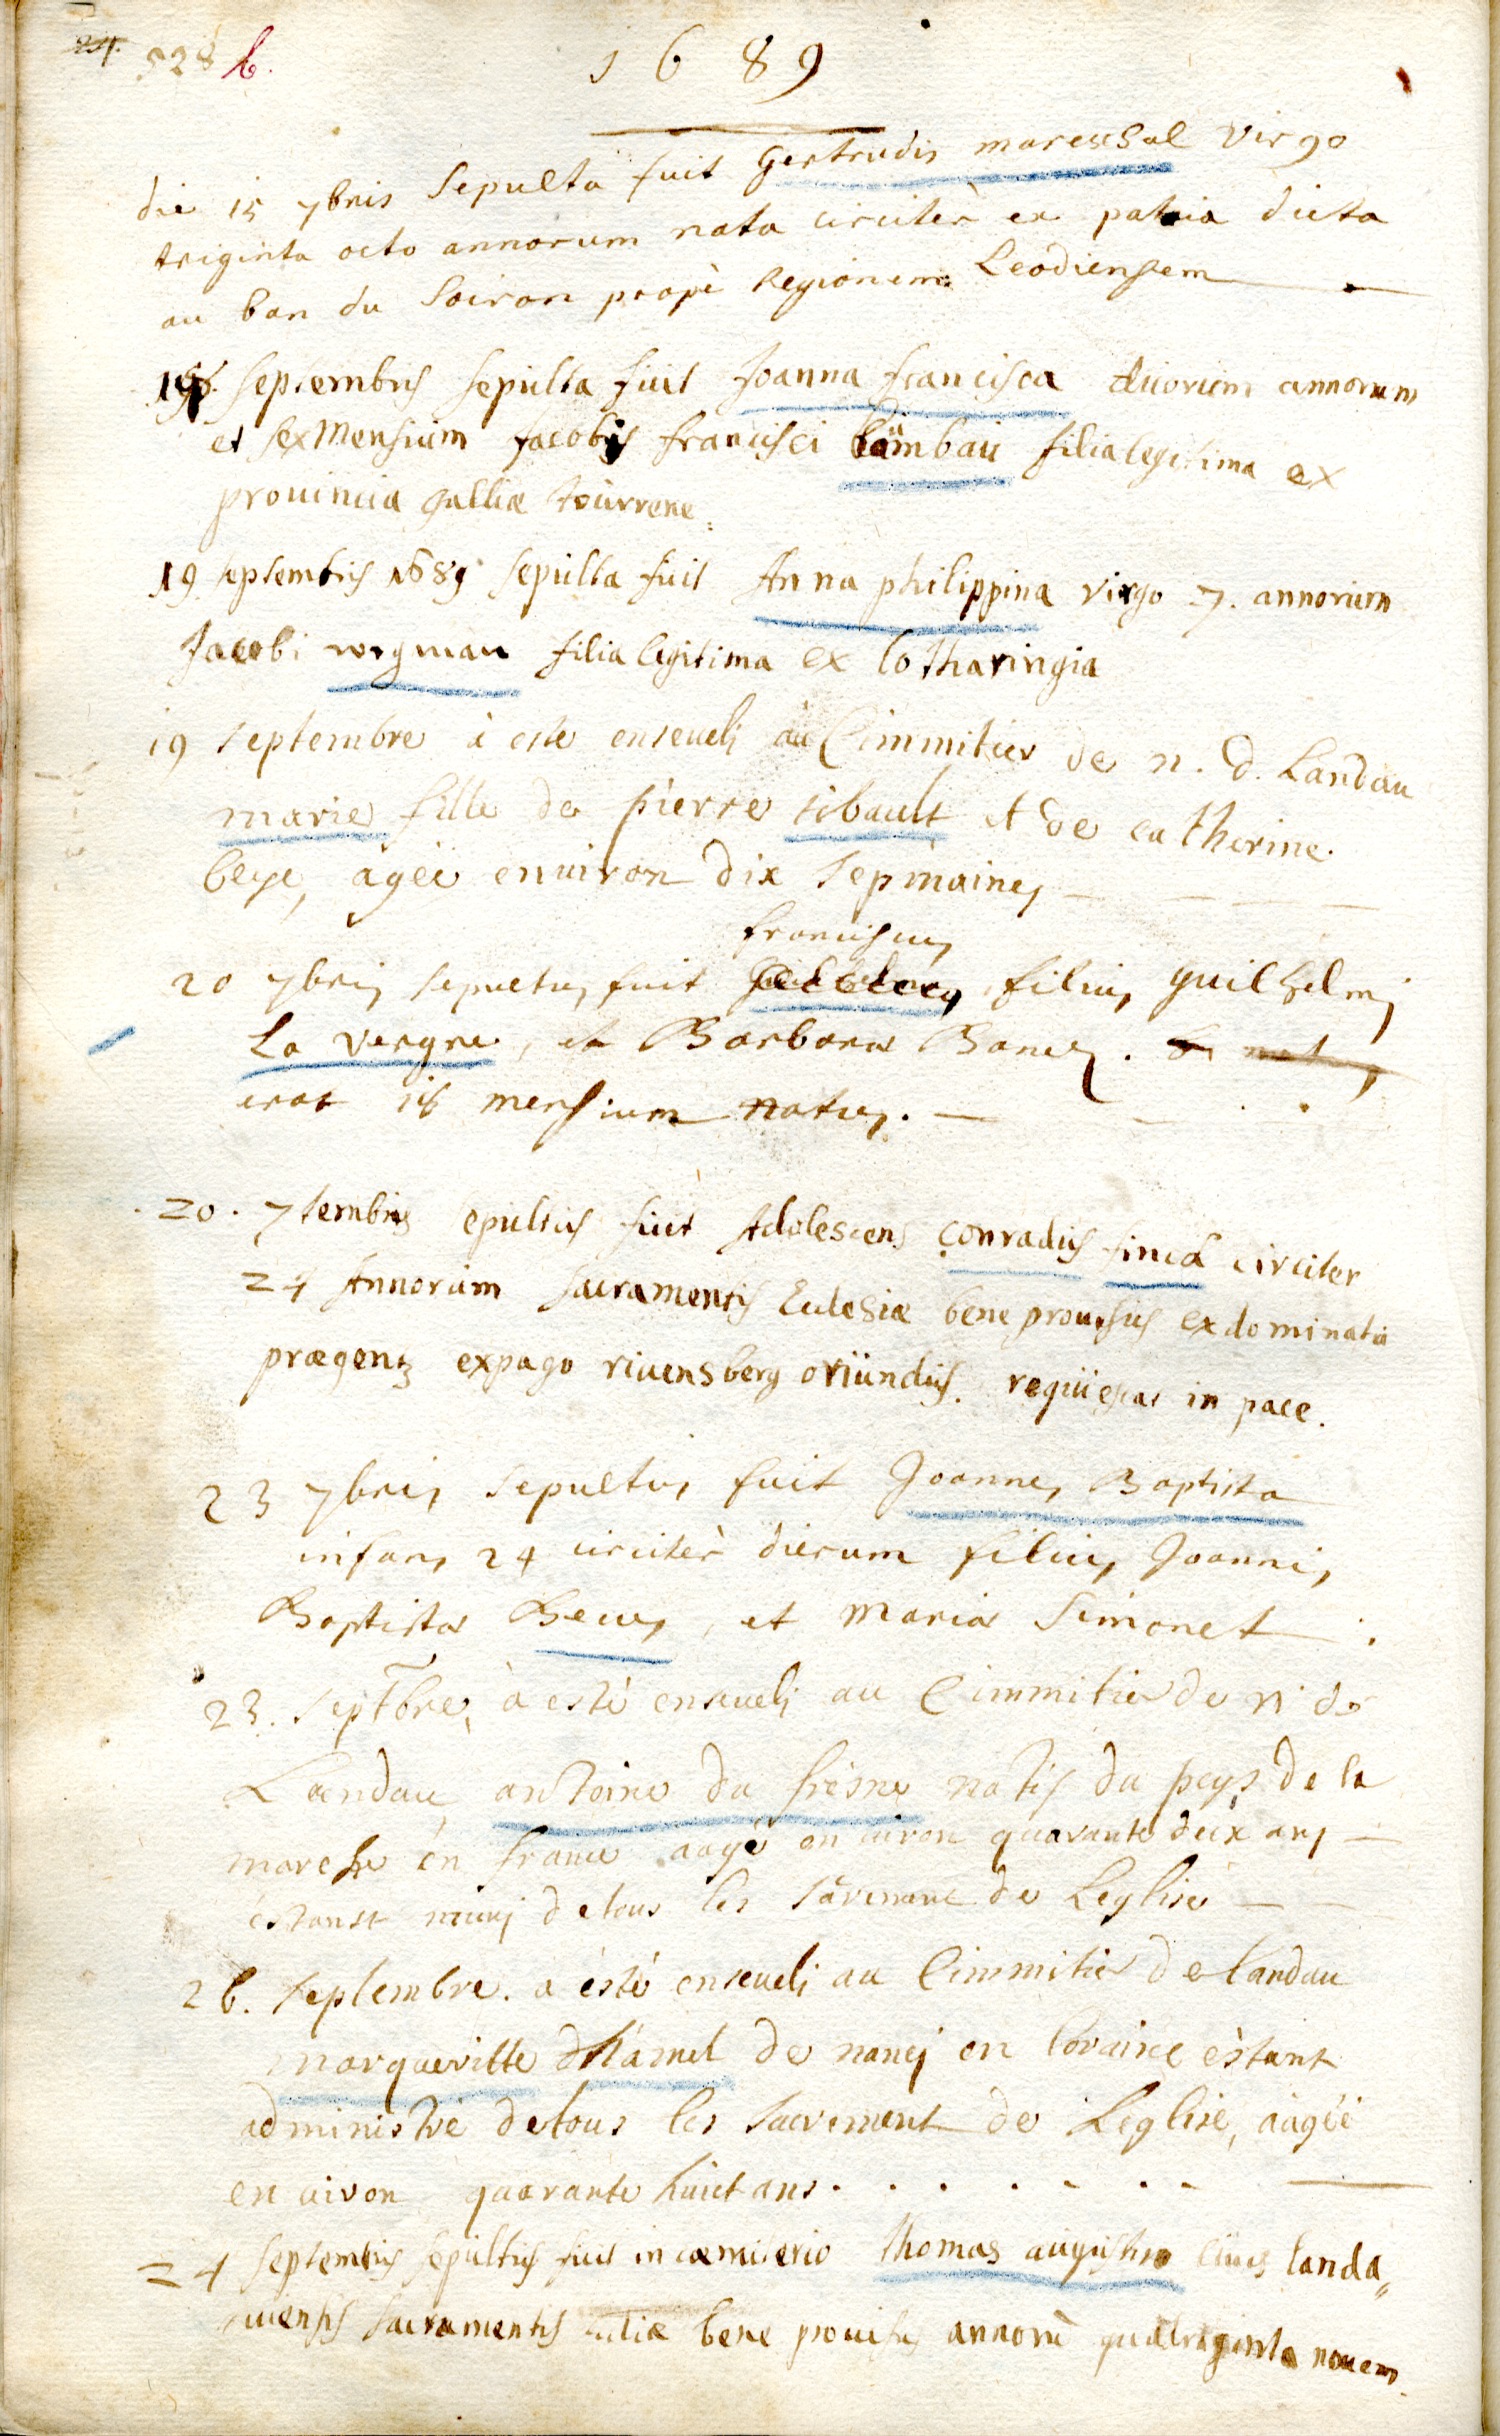 528 b.
1689
die 15 7bris Sepulta fuit Gertrudis mareschal Virgo
triginta octo annorum nata circiter ex patria dicta
au ban du Soiron propè Regionem Leodiensem
septembris sepulta fuit Joanna francisca duorum annorum
et sex Mensium Jacobi francisci bambau filia legitima ex
prouincia galliæ tourrene
19 septembris 1689 sepulta fuit Anna philippina virgo 7. annorum
Jacobi wegman filia legitima ex lotharingia
19 septembre à este enseueli au Cimmitier de n. d. Landau
marie fille de pierre tibault et de catherine
beye, agée enuiron dix sepmaines
franciscus
20 7bris sepultus fuit filius guilhelmi
La vergne, et Barbaræ Banez.
erat 18 mensium natus.
20. 7tembris epultus fuit Adolescens Conradus finck circiter
24 Annorum sacramentis Eclesiæ bene prouisus ex dominatu
prægentz ex pago riuensberg oriundus. requiescat in pace.
23 7bris sepultus fuit Joannes Baptista
infans 24 circiter dierum filius Joannis
Baptistæ Becus, et mariæ Simonet.
23. septbre à esté enseueli au Cimmitier de n. d.
Landau antoine du fresne natif du peys de la
marche en france aagé enuiron quarante deux ans
estanst muni de tous les sacremant de Leglise
26. septembre. a esté enseueli au Cimmitier de landau
margueritte dhamel de nanci en loraine estant
administré de tous les sacrement de Leglise, aagéé
enuiron quarante huict ans.
24 septembris sepultus fuit in cæmiterio thomas augustin ciuis landa„
uiensis sacramentis bene prouisus annorū quatraginta nouem.